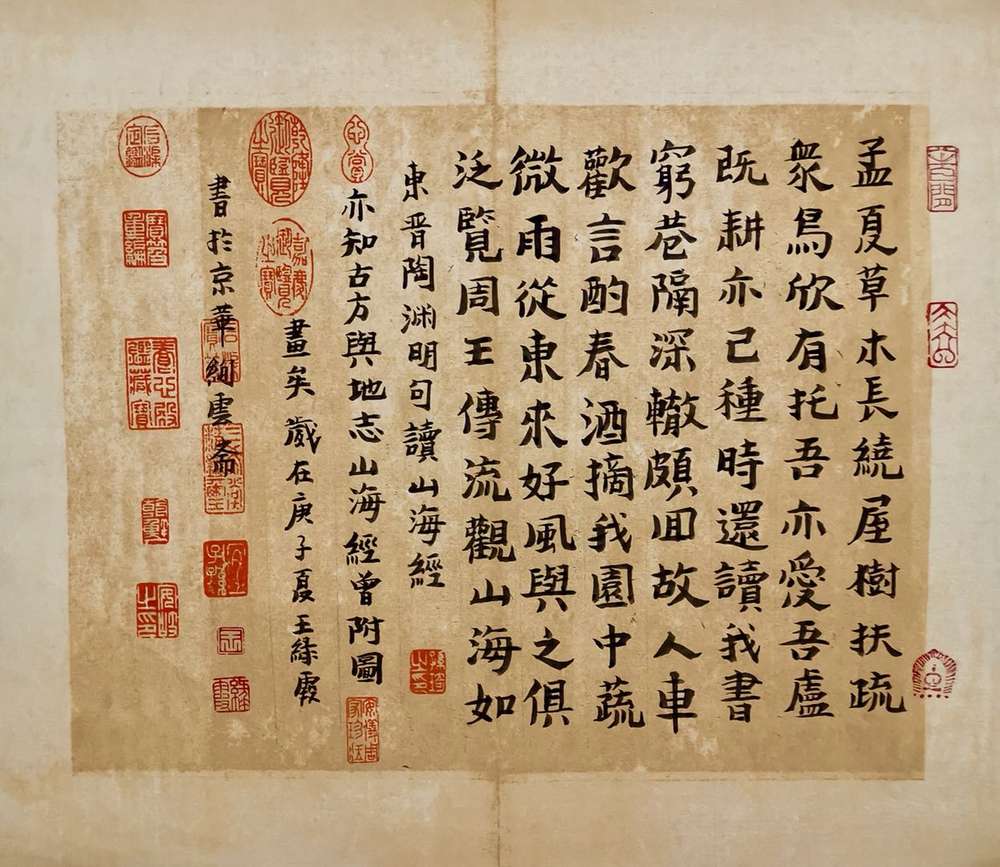 孟夏草木長繞屋樹扶疏
衆鳥欣有托吾亦愛吾廬
既耕亦已種時還讀我書
窮巷隔深轍頗迴故人車
歡言酌春酒摘我園中蔬
微雨從東來好風與之俱
泛覽周王傳流觀山海如
東晉陶淵明句讀山海經
亦知古方與地志山海經曾附圖
畫矣歲在庚子夏王綠霞
書於京華絢雲齋
嘉慶御覽之寶
養心殿鑑藏寶